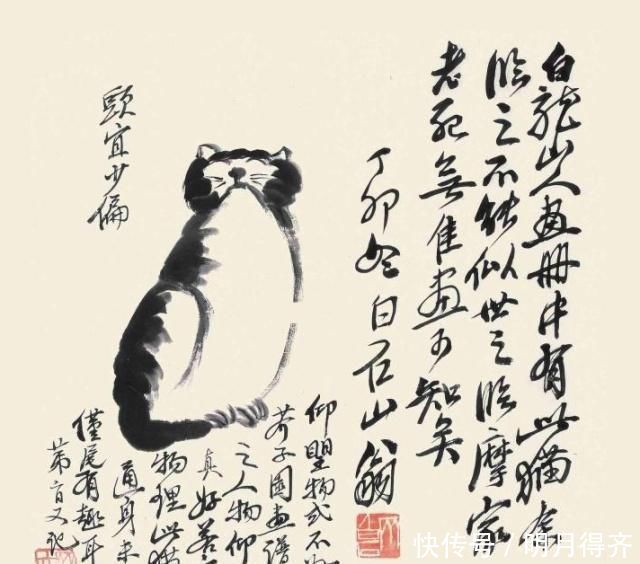 白龍山人畫冊中有此猫余
臨之不能似世之臨摩家
老死無佳畫可知矣
丁卯冬白石山翁
頭宜少偏
仰望物或不
芥子園畫譜
之人物仰
真好
物理此猫
通身未
僅尾有趣耳
又記
快传号 / 明月得齐